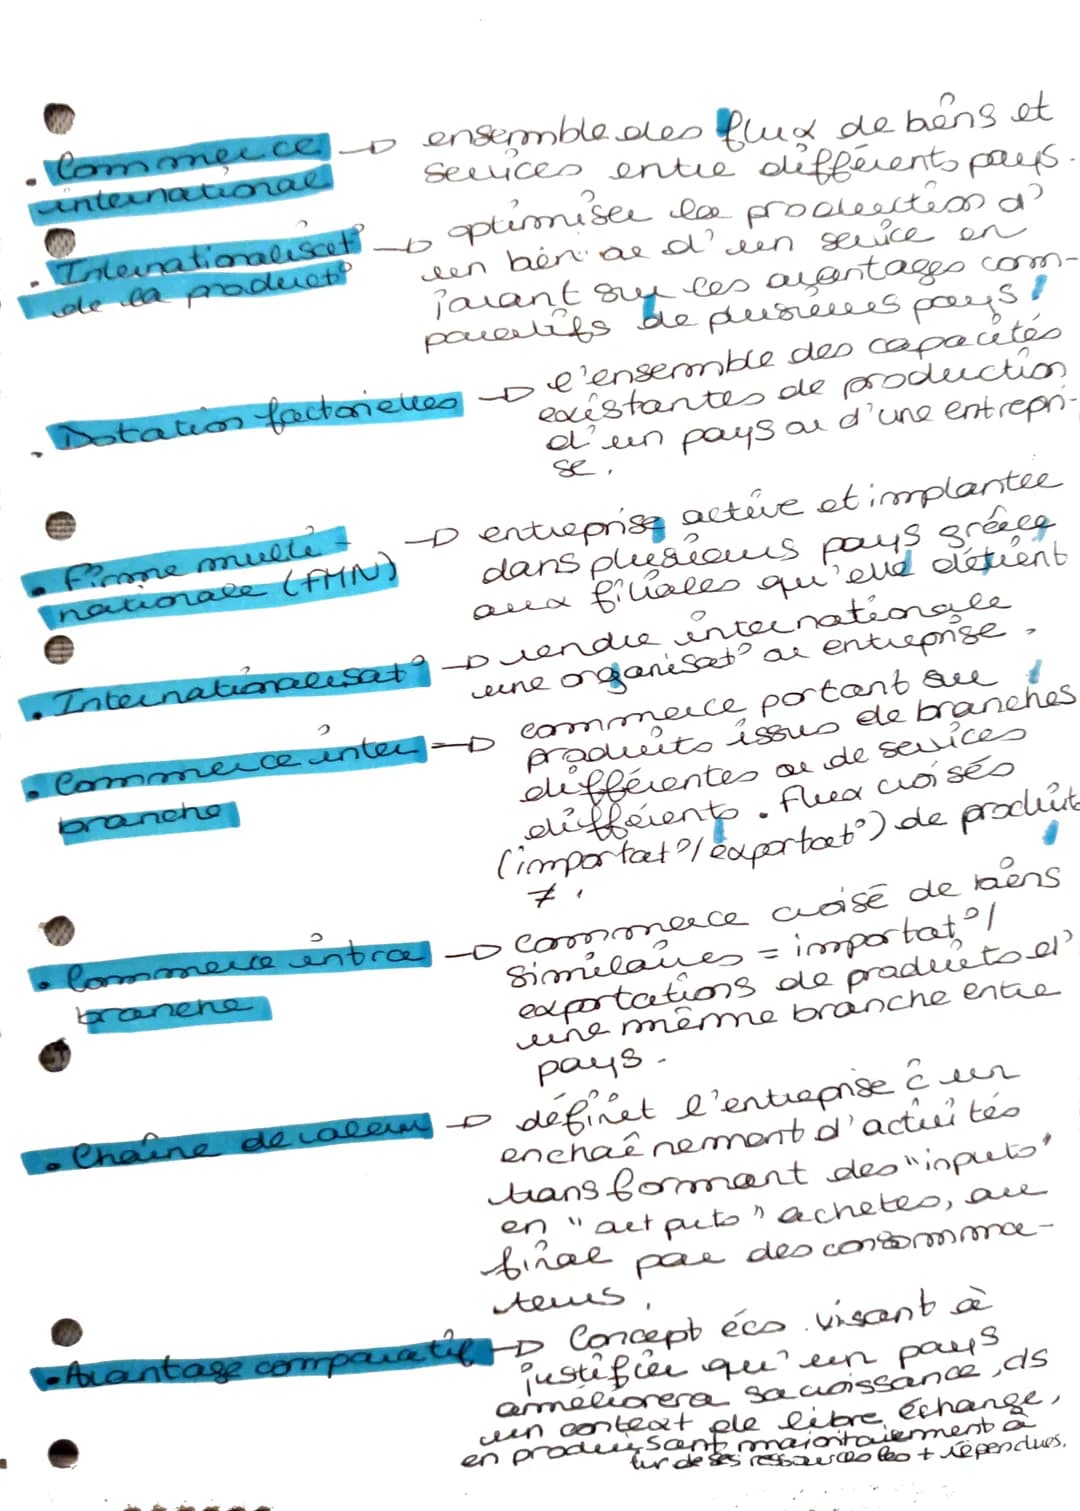 . Commerce → ensemble des flux de biens et
international services entre différents pays.
. Internationalisat° → optimiser la production d'
de la product° un bien ou d'un service en
jouant sur les avantages com-
paratifs de plusieurs pays
. Dotation factorielles → l'ensemble des capacités
existantes de production
d'un pays ou d'une entrepri-
se.
. Firme multi- → entreprise active et implantée
nationale (FMN) dans plusieurs pays grâce
aux filiales qu'elle détient
. Internationalisat° → rendre internationale
une organisat° ou entreprise.
. Commerce inter → commerce portant sur
branche produits issus de branches
différentes ou de services
différents. Flux croisés
(importat°/exportat°) de produits
≠.
. Commerce intra → Commerce croisé de biens
branche similaires = importat°/
exportations de produits d'
une même branche entre
pays.
. Chaîne de valeur → définit l'entreprise ê un
enchaînement d'activités
transformant des "inputs"
en "outputs" achetés, au
final par des consomma-
teurs.
. Avantage comparatif → Concept éco. visant à
justifier qu'un pays
améliorera sa croissance, ds
un context de libre échange,
en produisant majoritairement à
tur de ses ressources les + répendues.